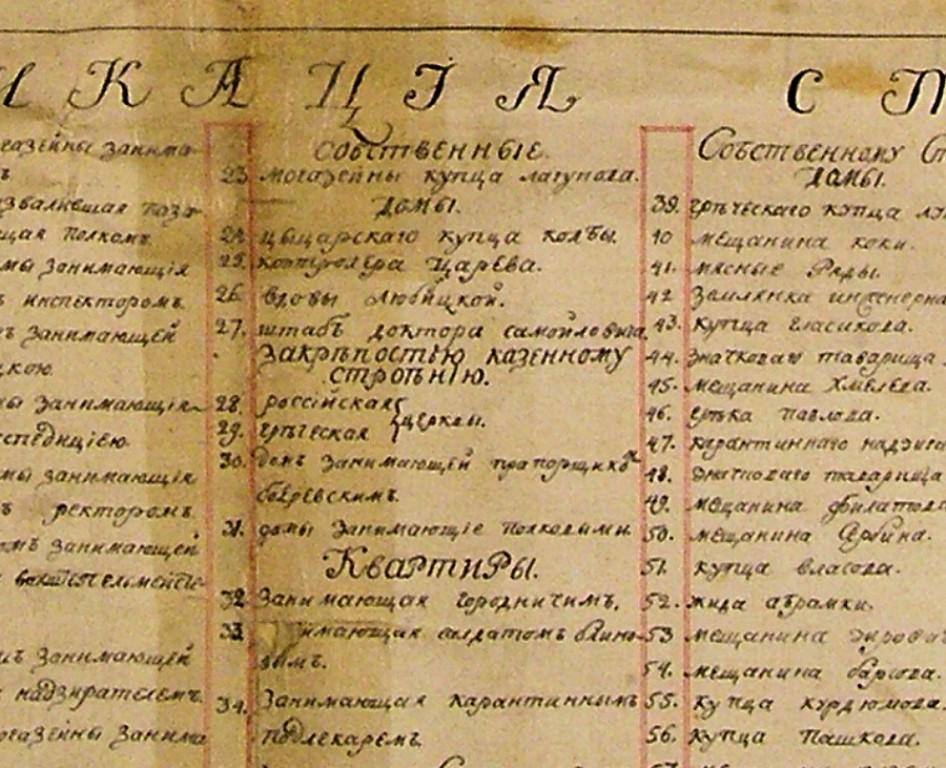 И К А Ц І Я С П
магазейны занима-
ь
развалившая
щая полкомъ
мы занимающія
ъ инспекторомъ
ъ занимающей
кою
ны занимающія
спедиціею
мы занимающія
ъ ректоромъ
омъ занимающей
мъ занимающей
надзирателемъ
магазейны занима
собственныіе.
23. могазейны купца лагунова.
домы.
24. цыцарскаго купца колбы.
25. контролера Царева.
26. вдовы Любицкой.
27. штабъ доктора самойловича
Закрѣпостью казенному
строѣнію.
28. россійская
церквы.
29. грѣческая
30. домъ занимающей прапорщикомъ
31. домы занимающіе полковыми
Квартиры.
32. Занимающая городничимъ.
33. имающая солдатомъ
вымъ.
34. Занимающая карантиннымъ
подлекаремъ.
Собственному Ст
домы.
39. грѣческаго купца
40 мещанина коки.
41. мясные Ряды.
42 Землянка инженерна
43. купца Власикова.
44. значковаго таварища
45. мещанина Хмелева.
46. грѣка павлова.
47. карантиннаго надзира
48. значковаго таварища
49. мещанина филатова
50. мещанина Сербина.
51. купца власова.
52. жида абрамки.
53 мещанина
54. мещанина
55. купца курдюмова.
56. купца Пашкова.
57